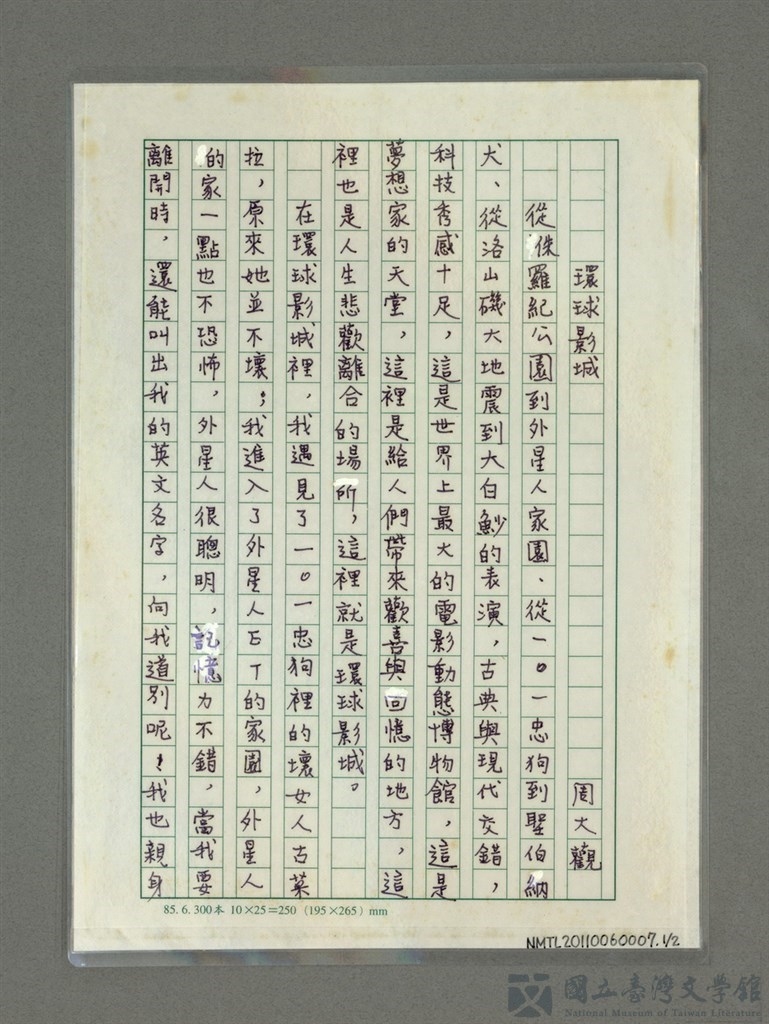 環球影城 周大觀
從侏羅紀公園到外星人家園、從一0一忠狗到聖伯納
犬、從洛山磯大地震到大白鯊的表演，古典與現代交錯，
科技秀感十足，這是世界上最大的電影動態博物館，這是
夢想家的天堂，這裡是給人們帶來歡喜與回憶的地方，這
裡也是人生悲歡離合的場所，這裡就是環球影城。
在環球影城裡，我遇見了一0一忠狗裡的壞女人古菜
拉，原來她並不壞；我進入了外星人ET的家園，外星人
的家一點也不恐怖，外星人很聰明，記憶力不錯，當我要
離開時，還能叫出我的英文名字，向我道別呢！我也親身
85.6.300本 10×25=250 (195×265) mm
NMTL20110060007.1/2
國立臺灣文學館
National Museum of Taiwan Literature